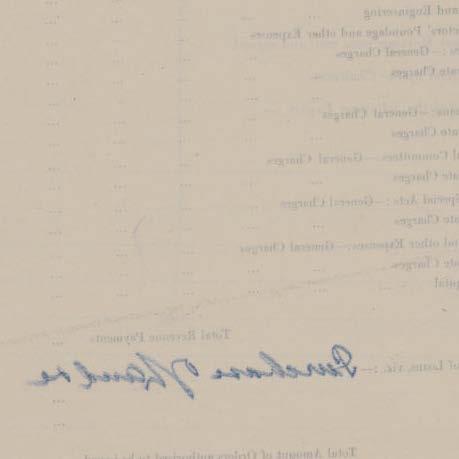 and Engineering ... ...
ctors' Poundage and other Expenses ...
es :—General Charges ...
rate Charges ...
ans:—General Charges ...
rate Charges ...
al Committees.—General Charges
ate Charges ...
Special Acts :—General Charges ...
rate Charges ...
nd other Expenses:—General Charges
ate Charges ...
pital ...
Total Revenue Payments
of Loans, viz. :—
Purchase of Land re
Total Amount of Orders authorised to be issued